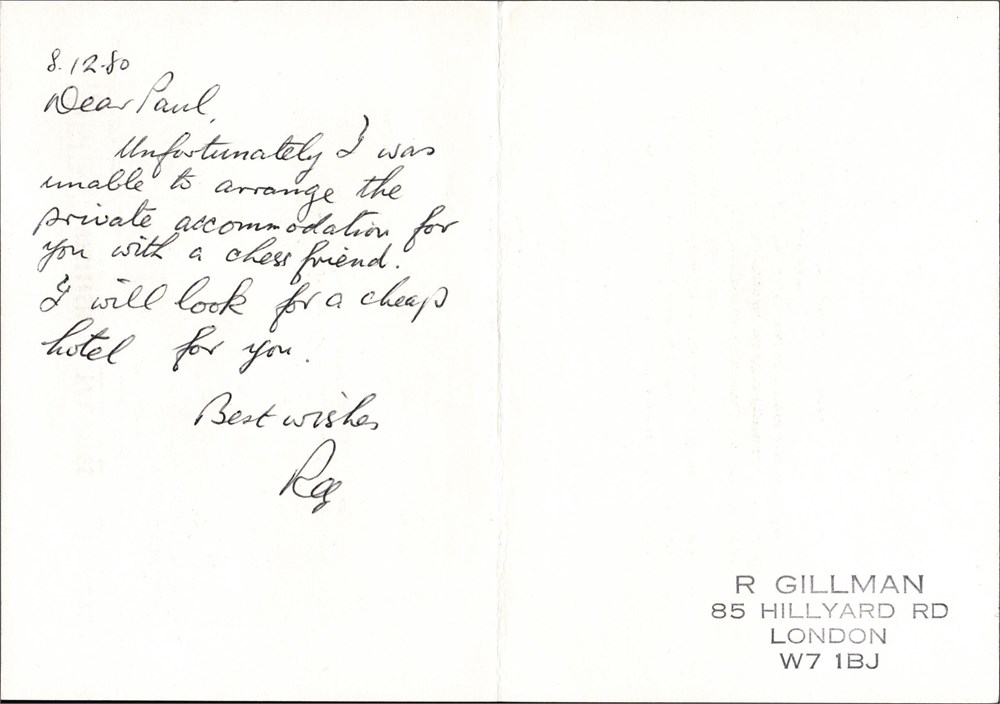 8.12.80
Dear Paul,
Unfortunately I was
unable to arrange the
private accommodation for
you with a chess friend.
I will look for a cheap
hotel for you.
Best wishes
R GILLMAN
85 HILLYARD RD
LONDON
W7 1BJ